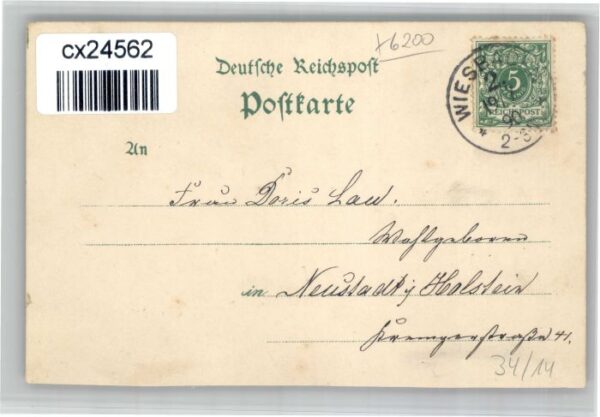 cx24562
+6200
Deutsche Reichspost
Postkarte
WIESBADEN
2
5
REICHSPOST
An
Frau Doris Lau.
Wohlgeboren
in Neustadt i/ Holstein
Kremperstraße 41.
34/14